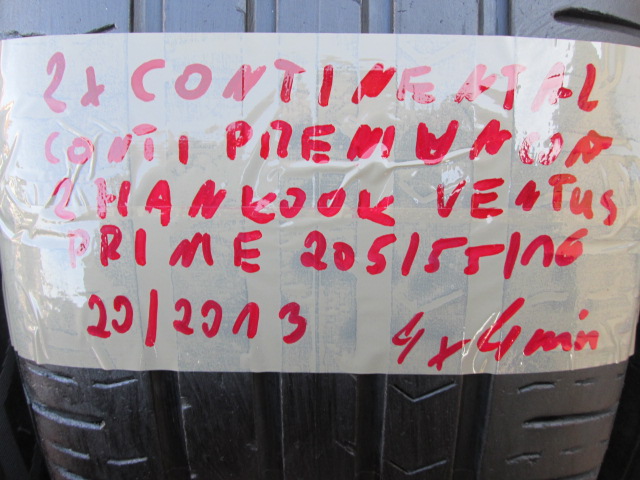 2x CONTINENTAL
CONTI PREMIUMCON
2 HANKOOK VENTUS
PRIME 205/55/16
20/2013 4x4min